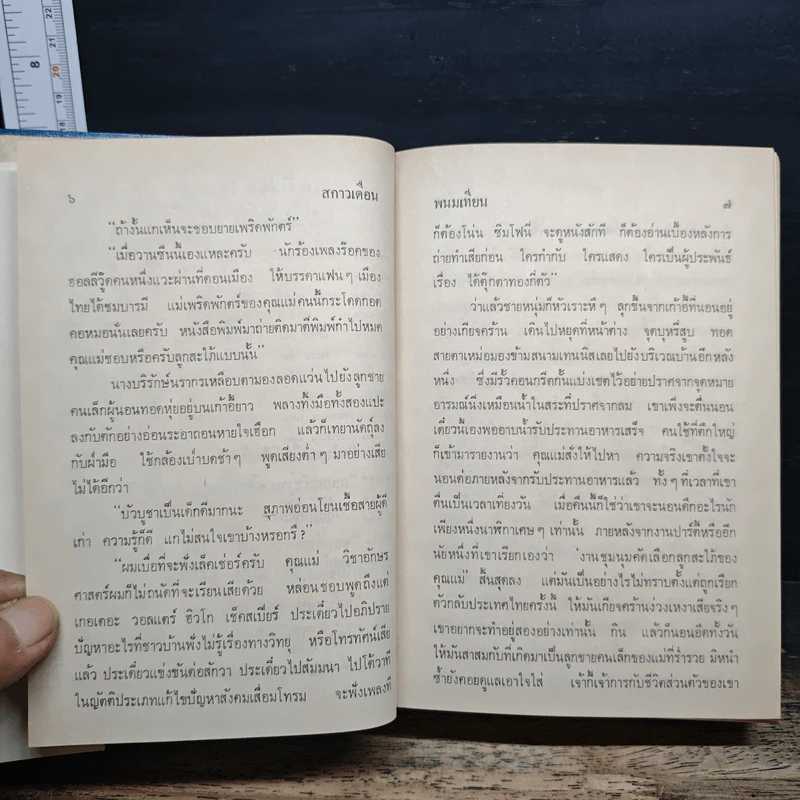 8
22
21
20
19
18
๖ สกาวเดือน
"ถ้างั้นแกเห็นจะชอบยายเพริดพักตร์"
"เมื่อวานซืนนี้เองแหละครับ นักร้องเพลงร๊อคของ
ฮอลลีวู้ดคนหนึ่งแวะผ่านที่ดอนเมือง ให้บรรดาแฟนๆ เมือง
ไทยได้ชมบารมี แม่เพริดพักตร์ของคุณแม่คนนี้กระโดดกอด
คอหมอนั่นเลยครับ หนังสือพิมพ์มาถ่ายติดมาตีพิมพ์กำไปหมด
คุณแม่ชอบหรือครับลูกสะใภ้แบบนั้น"
นางบริรักษ์นรากรเหลือบตามองลอดแว่นไปยังลูกชาย
คนเล็กผู้นอนทอดหุ่ยอยู่บนเก้าอี้ยาว พลางทิ้งมือทั้งสองแปะ
ลงกับตักอย่างอ่อนระอาถอนหายใจเฮือก แล้วก็เทยานัตถุ์ลง
กับฝ่ามือ ใช้กล้องเป่าบดช้าๆ พูดเสียงต่ำๆ มาอย่างเสีย
ไม่ได้อีกว่า
"บัวบูชาเป็นเด็กดีมากนะ สุภาพอ่อนโยนเชื้อสายผู้ดี
เก่า ความรู้ก็ดี แกไม่สนใจเขาบ้างหรอกรึ?"
"ผมเบื่อที่จะฟังเล็คเช่อร์ครับ คุณแม่ วิชาอักษร
ศาสตร์ผมก็ไม่ถนัดที่จะเรียนเสียด้วย หล่อนชอบพูดถึงแต่
เกอเตอะ วอลแตร์ ฮิวโก เช็คสเปียร์ ประเดี๋ยวไปอภิปราย
ปัญหาอะไรที่ชาวบ้านฟังไม่รู้เรื่องทางวิทยุ หรือโทรทัศน์เสีย
แล้ว ประเดี๋ยวแข่งขันต่อสักวา ประเดี๋ยวไปสัมมนา ไปโต้วาที
ในญัตติประเภทแก้ไขปัญหาสังคมเสื่อมโทรม จะฟังเพลงที
พนมเทียน ๗
ก็ต้องโน่น ซิมโฟนี่ จะดูหนังสักที ก็ต้องอ่านเบื้องหลังการ
ถ่ายทำเสียก่อน ใครกำกับ ใครแสดง ใครเป็นผู้ประพันธ์
เรื่อง ได้ตุ๊กตาทองกี่ตัว"
ว่าแล้วชายหนุ่มก็หัวเราะหึๆ ลุกขึ้นจากเก้าอี้ที่นอนอยู่
อย่างเกียจคร้าน เดินไปหยุดที่หน้าต่าง จุดบุหรี่สูบ ทอด
สายตาเหม่อมองข้ามสนามเทนนิสเลยไปยังบริเวณบ้านอีกหลัง
หนึ่ง ซึ่งมีรั้วคอนกรีตกั้นแบ่งเขตไว้อย่ายปราศจากจุดหมาย
อารมณ์นึ่งเหมือนน้ำในสระที่ปราศจากลม เขาเพิ่งจะตื่นนอน
เดี๋ยวนี้เองพออาบน้ำรับประทานอาหารเสร็จ คนใช้ที่ตึกใหญ่
ก็เข้ามารายงานว่า คุณแม่สั่งให้ไปหา ความจริงเขาตั้งใจจะ
นอนต่อภายหลังจากรับประทานอาหารแล้ว ทั้งๆ ที่เวลาที่เขา
ตื่นเป็นเวลาเที่ยงวัน เมื่อคืนนี้ก็ใช่ว่าเขาจะนอนดึกอะไรนัก
เพียงหนึ่งนาฬิกาเศษๆ เท่านั้น ภายหลังจากงานปาร์ตี้หรืออีก
นัยหนึ่งที่เขาเรียกเองว่า 'งานชุมนุมคัดเลือกลูกสะใภ้ของ
คุณแม่' สิ้นสุดลง แต่มันเป็นอย่างไรไม่ทราบตั้งแต่ถูกเรียก
ตัวกลับประเทศไทยครั้งนี้ ให้มันเกียจคร้านง่วงเหงาเสียจริงๆ
เขาอยากจะทำอยู่สองอย่างเท่านั้น กิน แล้วก็นอนอืดทั้งวัน
ให้มันสาสมกับที่เกิดมาเป็นลูกชายคนเล็กของแม่ที่ร่ำรวย มิหนำ
ซ้ำยังคอยดูแลเอาใจใส่ เจ้ากี้เจ้าการกับชีวิตส่วนตัวของเขา